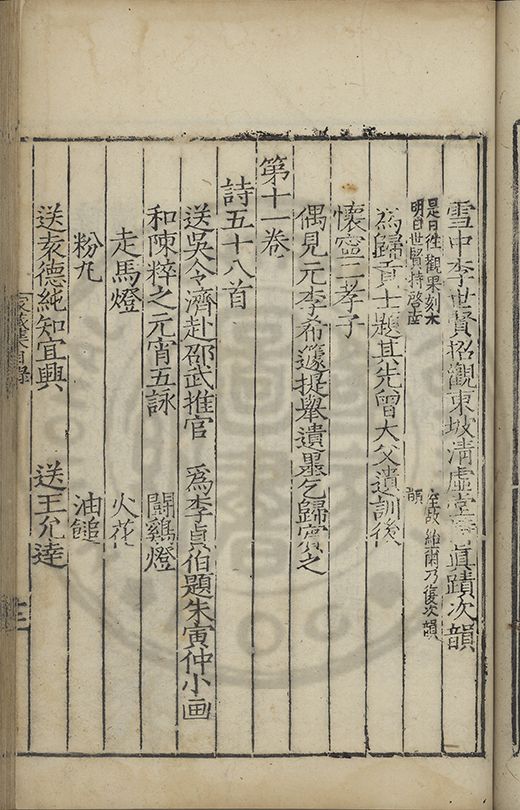 雪中李世賢招觀東坡清虛堂眞蹟次韻
是日徃觀果刻木
明日世賢持啓南
至故維爾乃復次韻
韻
為歸貢士題其先曾大父遺訓後
懷寧二孝子
偶見元李希蘧提舉遺墨乞歸賓之
第十一卷
詩五十八首
送吳令濟赴邵武推官　爲李貞伯題朱寅仲小画
和陳粹之元宵五詠　鬭鷄燈
走馬燈　火花
粉丸　油鎚
送袁德純知宜興　送王允達
家藏集目錄